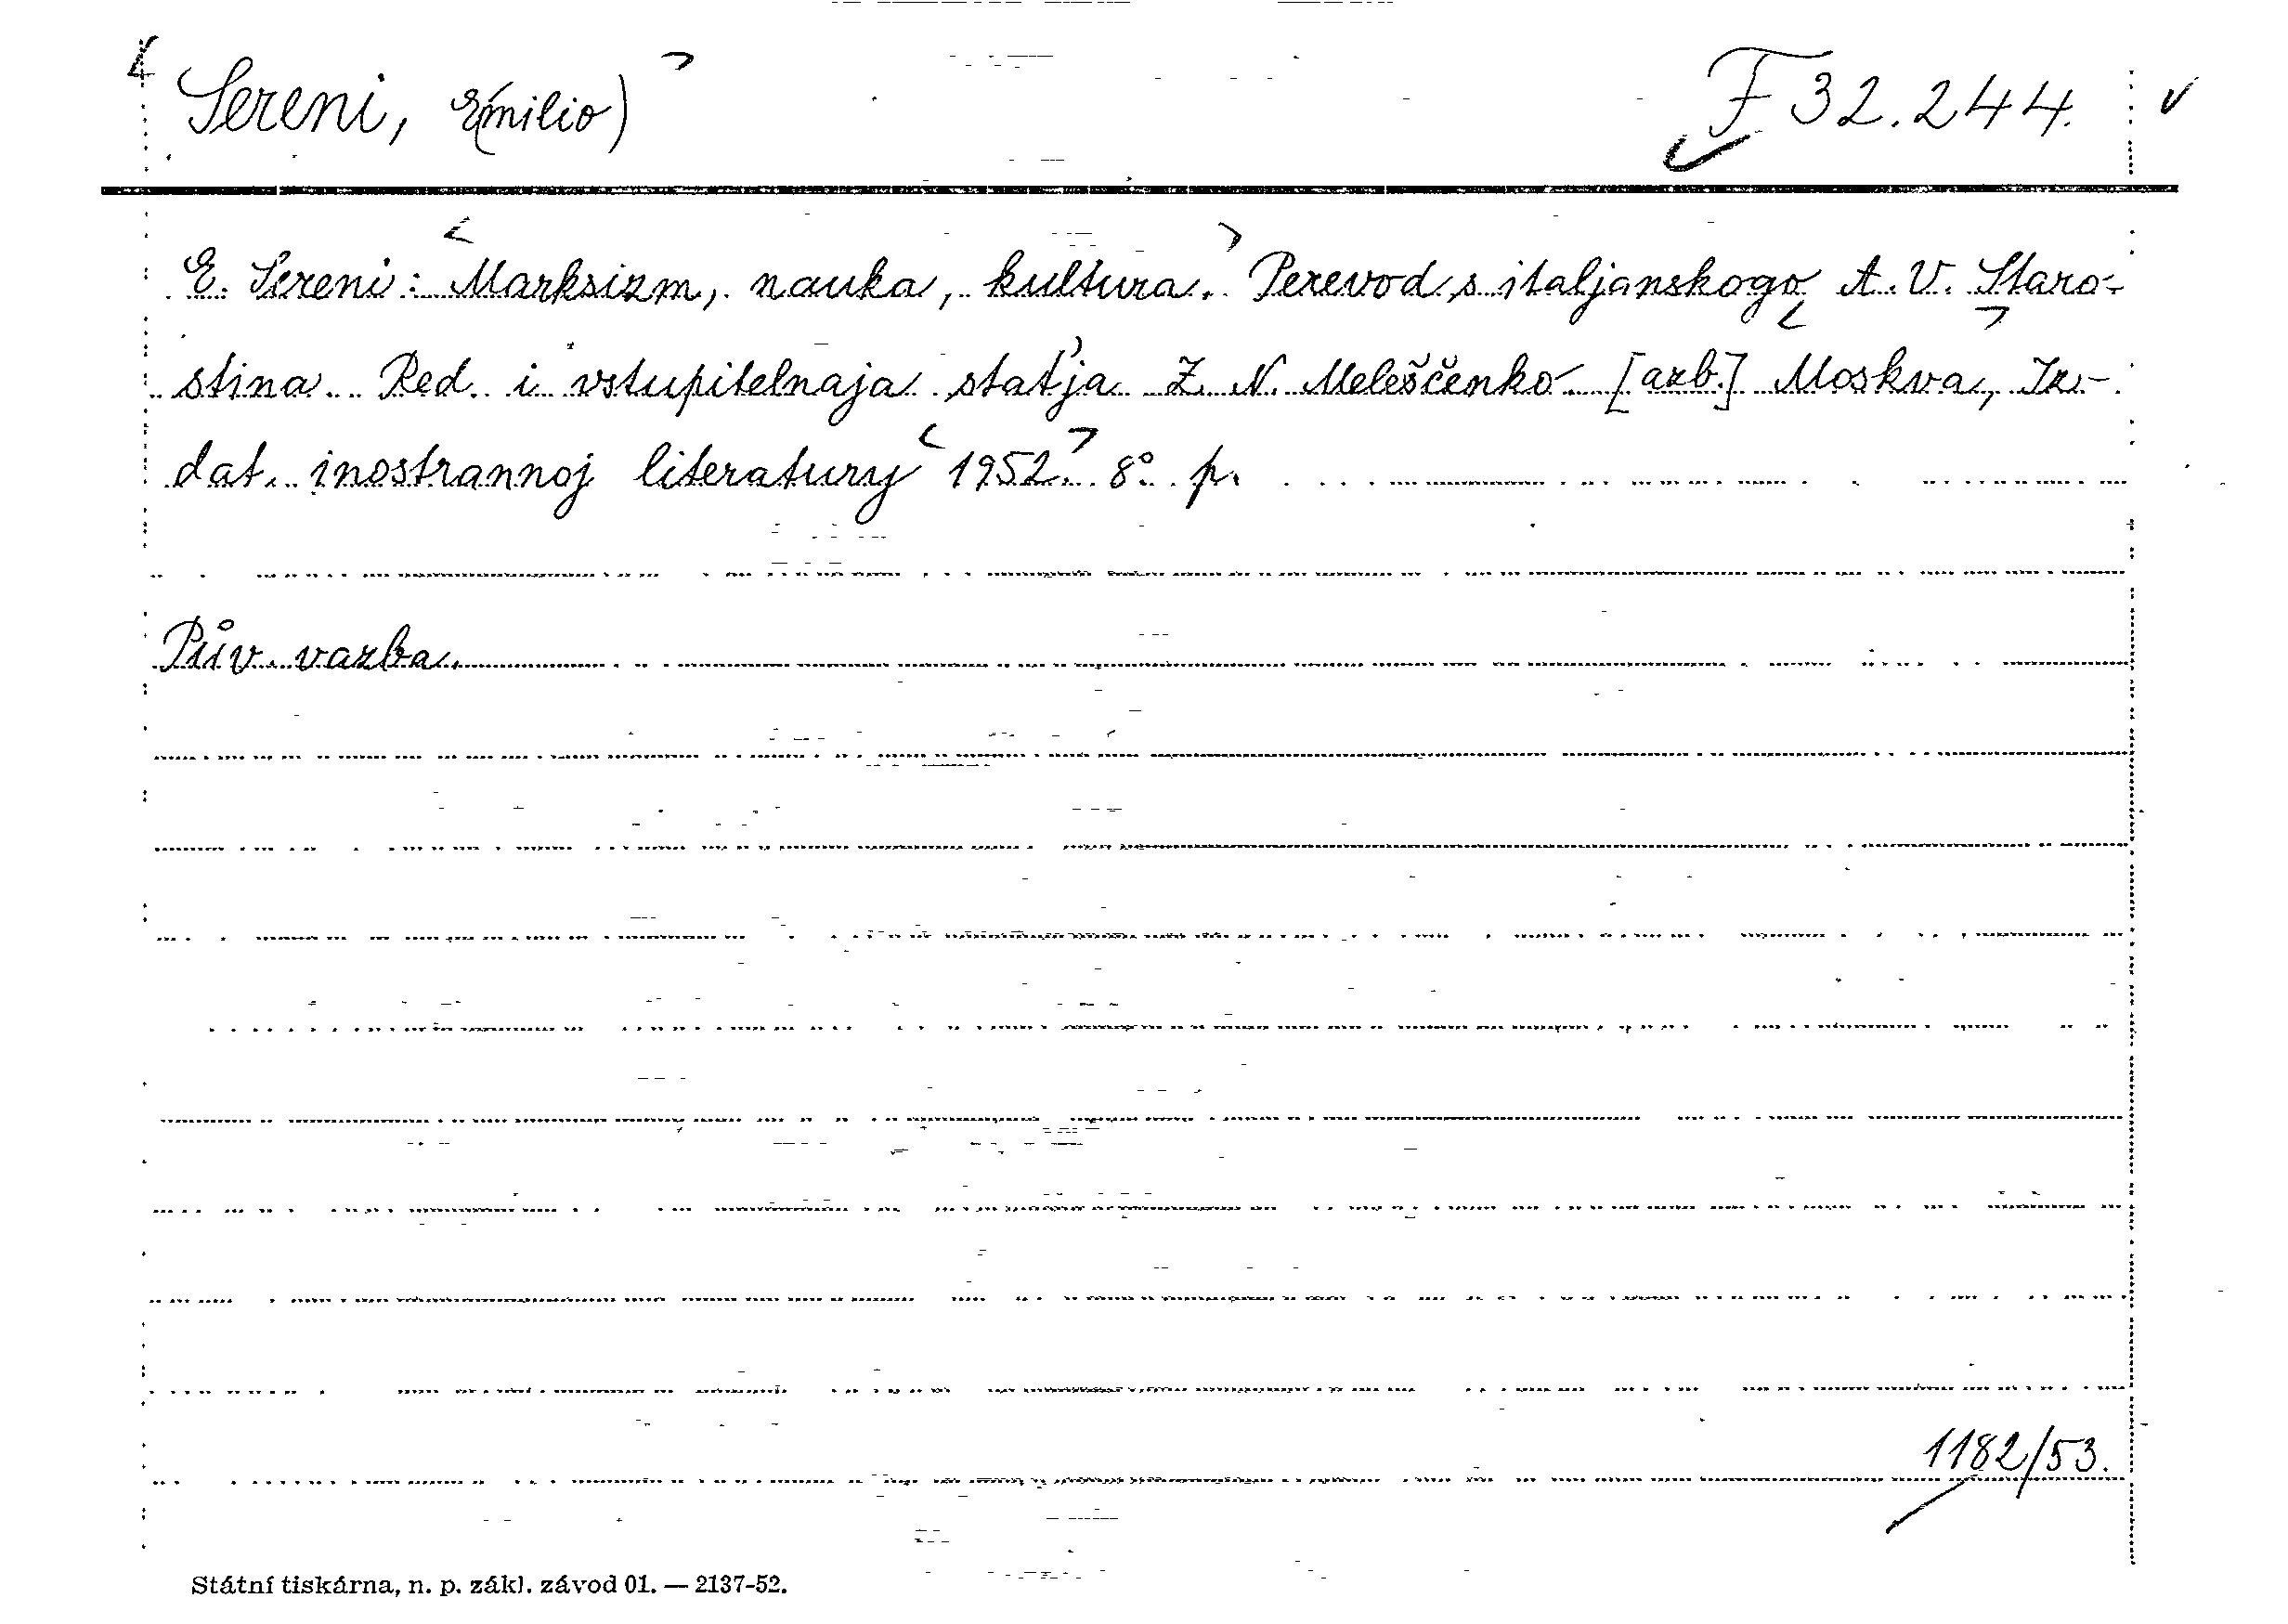 Sereni, E(milio)
F 32.244.
E. Sereni: Marksizm, nauka, kultura. Perevod s italjanskogo A. V. Staro-
stina. Red. i vstupitelnaja staťja Z. N. Meleščenko. [azb.] Moskva, Iz-
dat. inostrannoj literatury 1952. 8° p.
Pův. vazba.
1182/53.
Státní tiskárna, n. p. zákl. závod 01. — 2137-52.